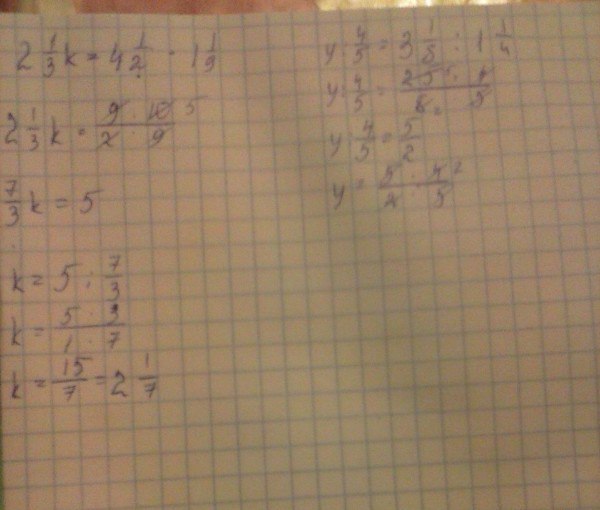 2 1/3 k = 4 1/2 · 1 1/9
2 1/3 k = 9 · 10 / 2 · 9 5
7/3 k = 5
k = 5 : 7/3
k = 5 · 3 / 1 · 7
k = 15/7 = 2 1/7
y : 4/5 = 3 1/8 : 1 1/4
y : 4/5 = 25 · 4 / 8 · 5
y : 4/5 = 5/2
y = 5 · 4 / 2 · 5